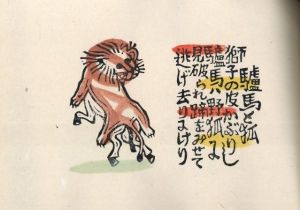 驢馬と狐
獅子の皮かぶりし
驢馬ハ野狐に
見破られ蹄をみせて
逃げ去りけり